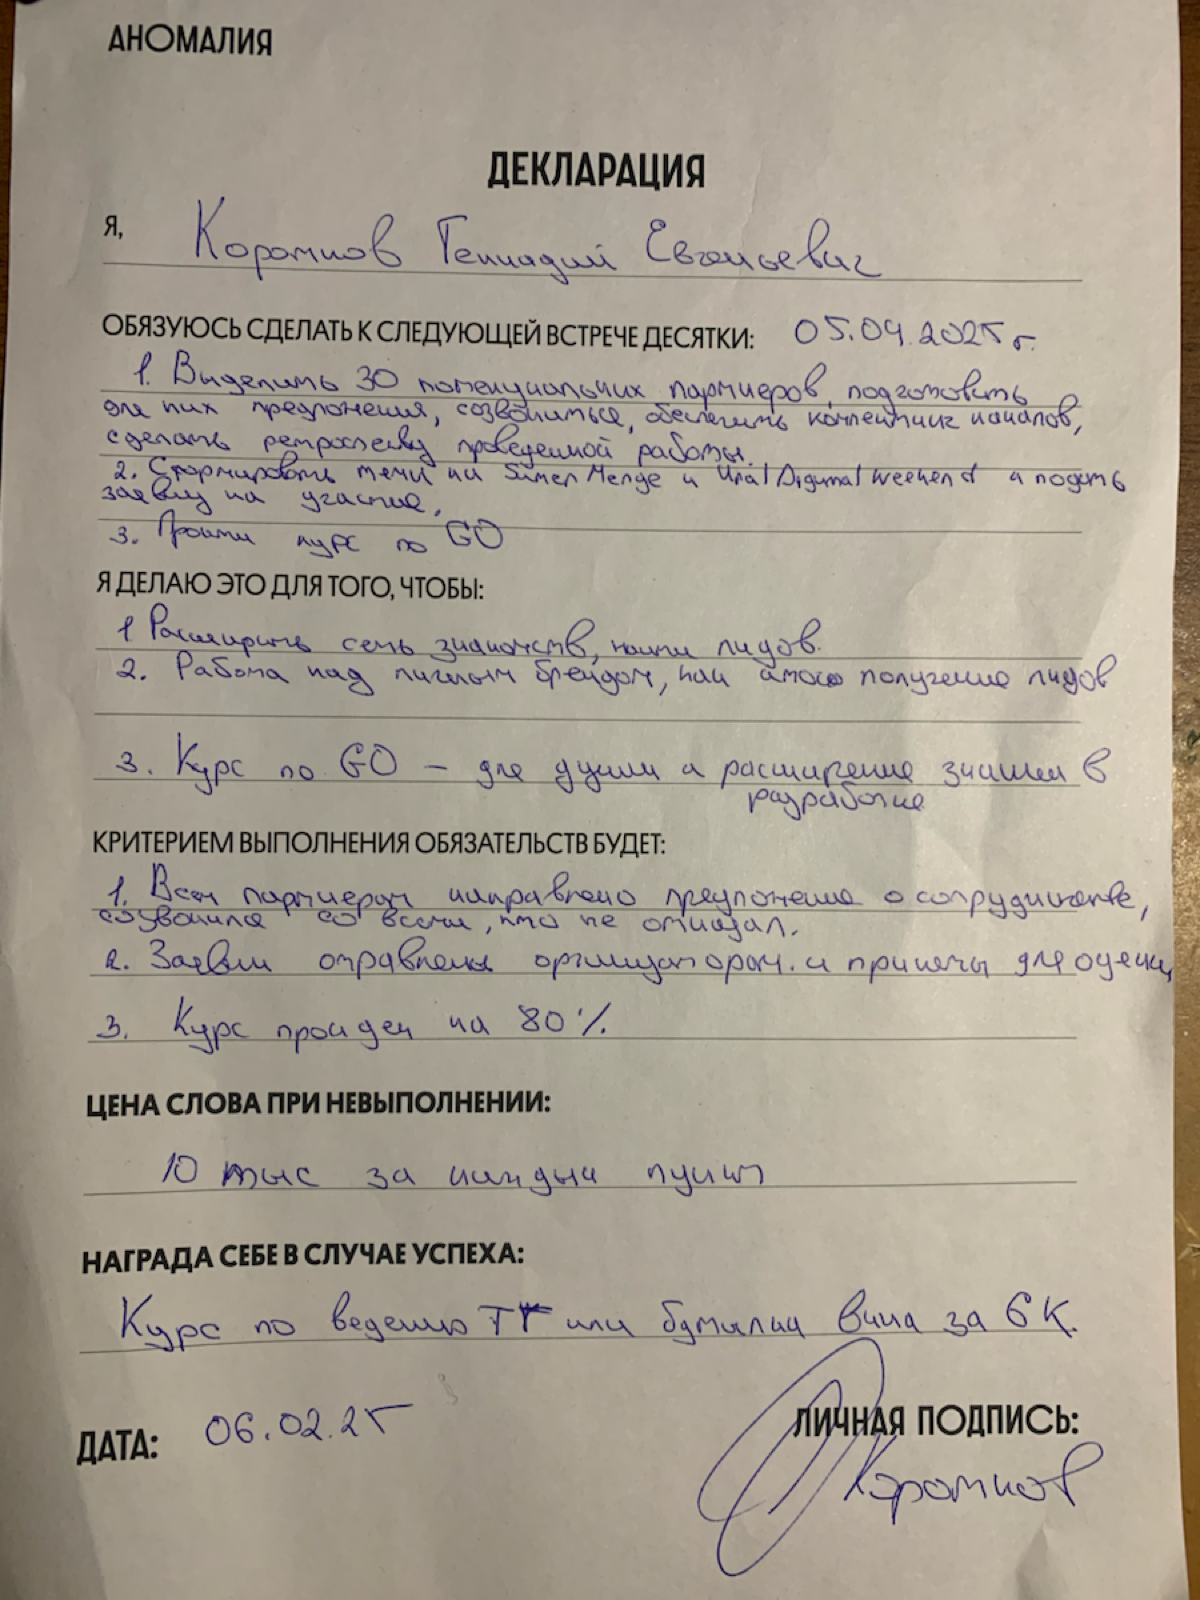 АНОМАЛИЯ
ДЕКЛАРАЦИЯ
Я, Коротков Геннадий Евгеньевич
ОБЯЗУЮСЬ СДЕЛАТЬ К СЛЕДУЮЩЕЙ ВСТРЕЧЕ ДЕСЯТКИ: 05.04.2025 г.
1. Выделить 30 потенциальных партнеров, подготовить
для них предложения, созвониться, обеспечить коннектинг каналов,
сделать ретроспективу проведенной работы.
2. Сформировать темы на Merge и Ural Digital Weekend и подать
заявку на участие.
3. Пройти курс по GO
Я ДЕЛАЮ ЭТО ДЛЯ ТОГО, ЧТОБЫ:
1 Расширить сеть знакомств, найти лидов.
2. Работа над личным брендом, как получение лидов
3. Курс по GO – для души и расширение знаний в
разработке
КРИТЕРИЕМ ВЫПОЛНЕНИЯ ОБЯЗАТЕЛЬСТВ БУДЕТ:
1. Всем партнерам направлено предложение о сотрудничестве,
со всеми, кто не отказал.
2. Заявки отправлены организаторам. и приняты для оценки
3. Курс пройден на 80%
ЦЕНА СЛОВА ПРИ НЕВЫПОЛНЕНИИ:
10 тыс за каждый пункт
НАГРАДА СЕБЕ В СЛУЧАЕ УСПЕХА:
Курс по ведению ТГ или бутылка вина за 6К.
ДАТА: 06.02.25
ЛИЧНАЯ ПОДПИСЬ:
Коротков